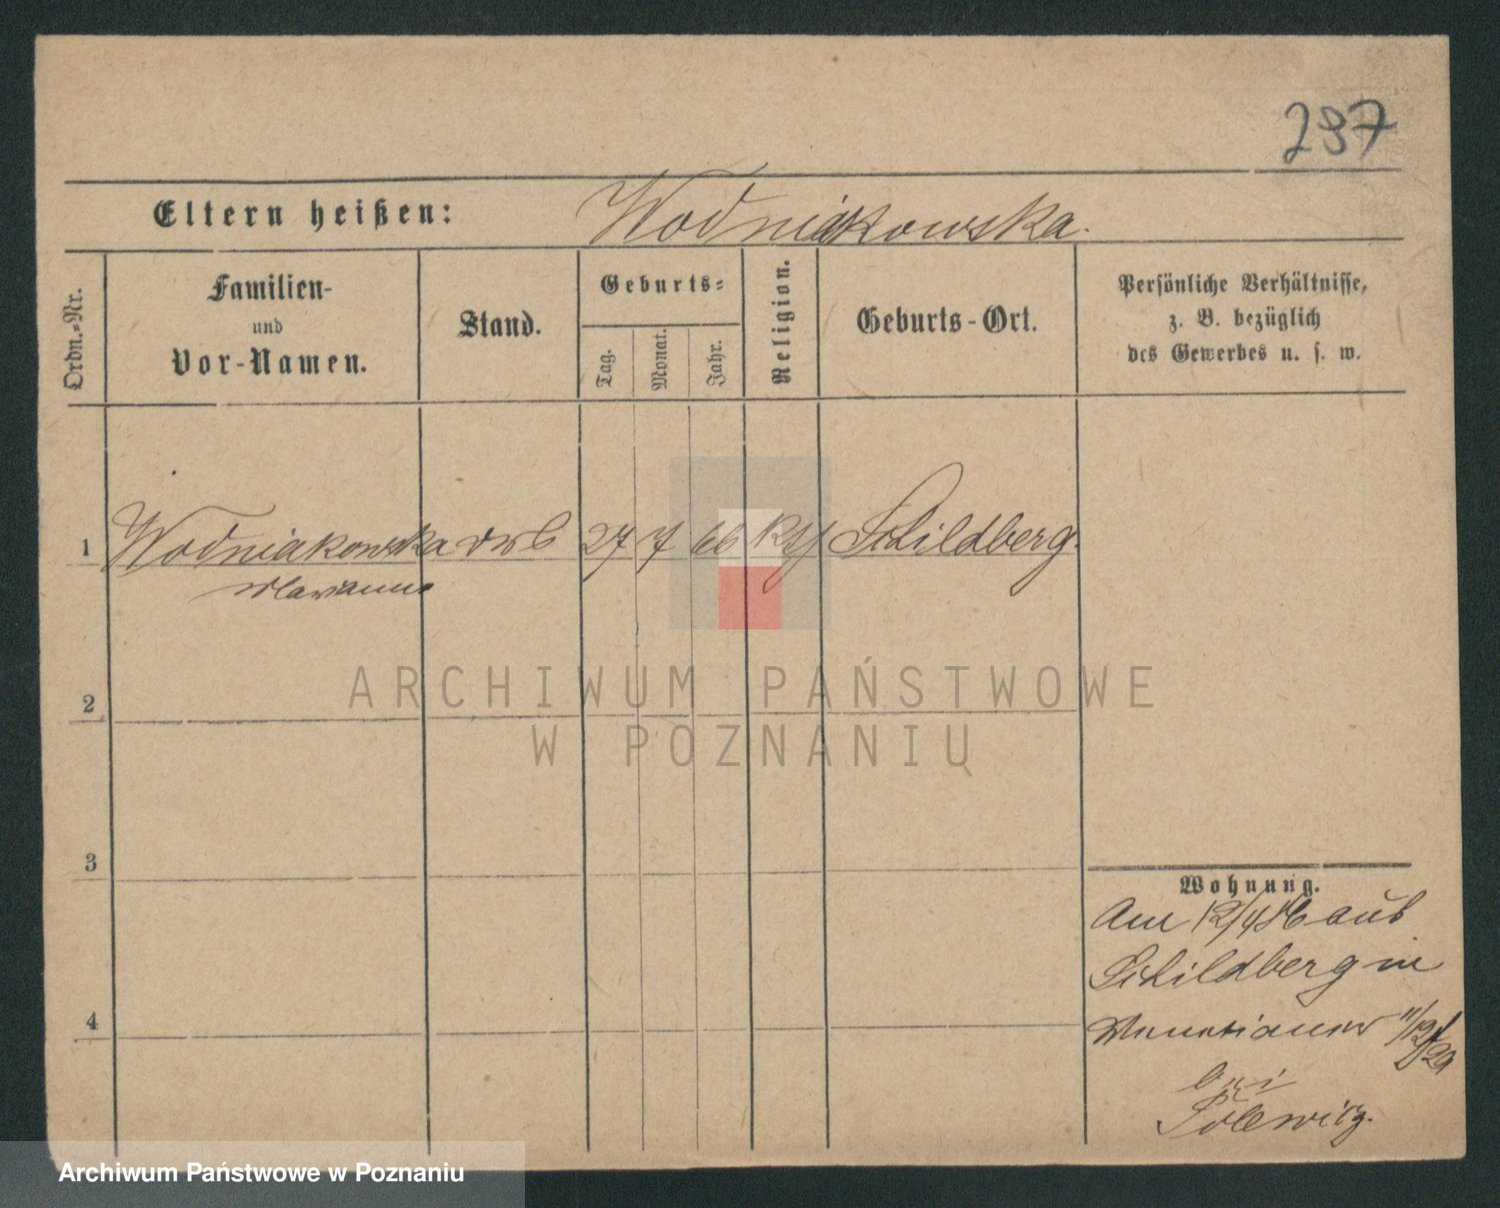 297
Eltern heißen: Wodniakowska.
Ordn.-Nr.
Familien-
und
Vor-Namen.
Stand.
Geburts-
Tag.
Monat.
Jahr.
Religion.
Geburts-Ort.
Persönliche Verhältnisse,
z. B. bezüglich
des Gewerbes u. s. w.
1 Wodniakowska 27 7 66 Schildberg.
Marianna
2
3
4
Wohnung.
Am 12/4 86 aus
Schildberg in
Venetianer 11/12
bei
ARCHIWUM PAŃSTWOWE
W POZNANIU
Archiwum Państwowe w Poznaniu